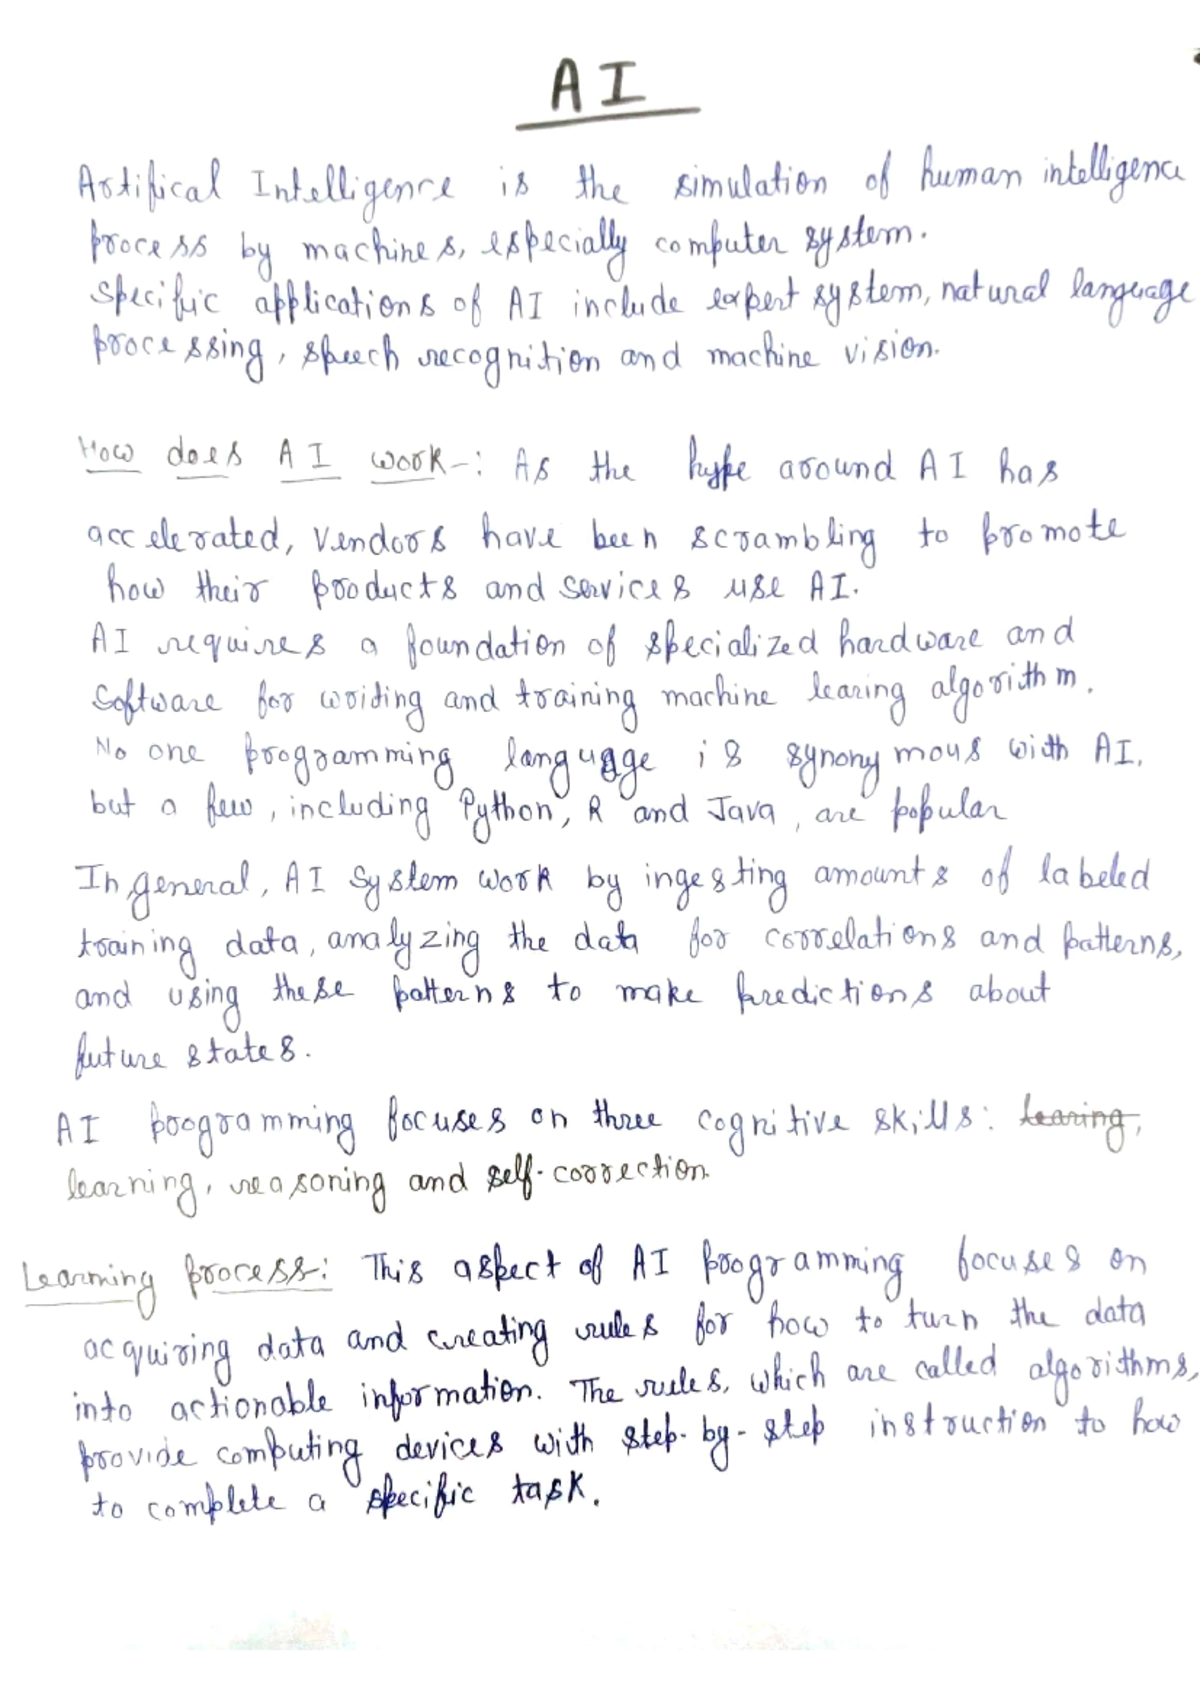 AI
Artifical Intelligence is the simulation of human intelligence
process by machines, especially computer system.
Specific applications of AI include expert system, natural language
processing, speech recognition and machine vision.
How does AI work-: As the hype around AI has
accelerated, vendors have been scrambling to promote
how their products and services use AI.
AI requires a foundation of specialized hardware and
Software for writing and training machine learing algorithm.
No one programming language is synonymous with AI,
but a few, including Python, R and Java, are popular
In general, AI System work by ingesting amounts of labeled
training data, analyzing the data for correlations and patterns,
and using these patterns to make predictions about
future states.
AI programming focuses on three cognitive skills: learing,
learning, reasoning and self-correction.
Learning process-: This aspect of AI programming focuses on
acquiring data and creating rules for how to turn the data
into actionable information. The rules, which are called algorithms,
provide computing devices with step-by-step instruction to how
to complete a specific task.